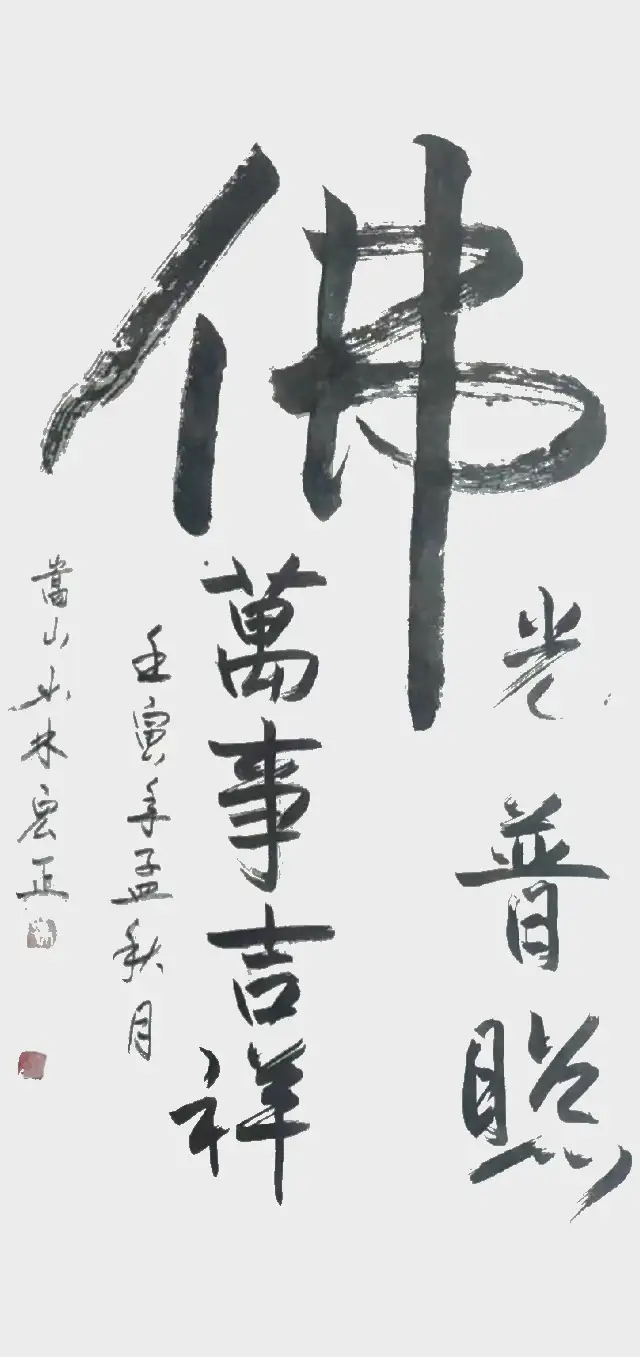 佛
光普照
萬事吉祥
壬寅年孟秋月
嵩山少林宏正